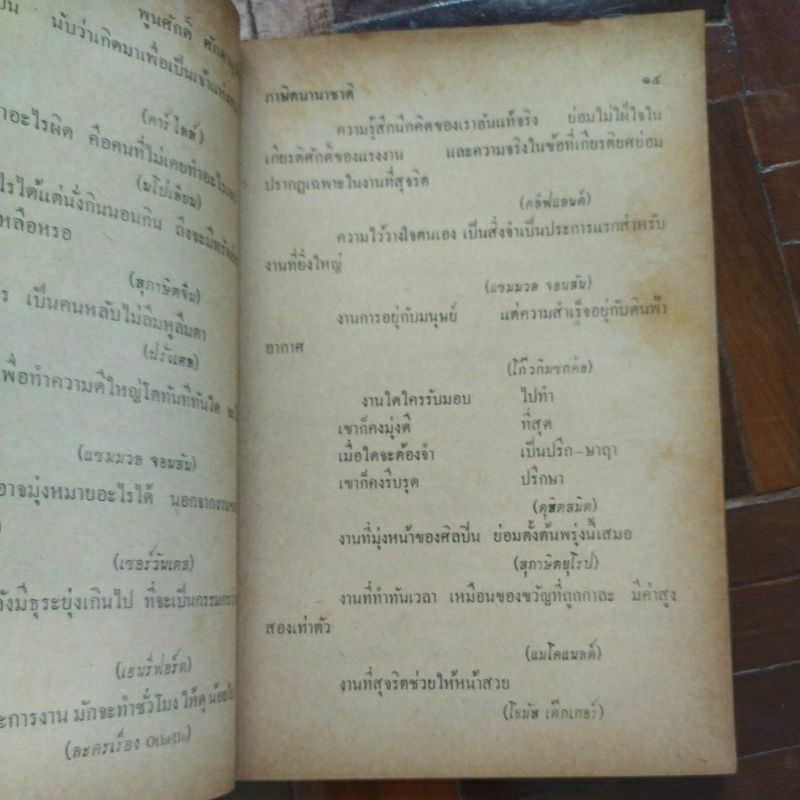 พูนศักดิ์
นับว่าเกิดมาเพื่อเป็นเจ้าแห่ง
(คาร์ไลล์)
อะไรผิด คือคนที่ไม่เคยทำอะไรเลย
(นโปเลียน)
ไรได้แต่นั่งกินนอนกิน ถึงจะมีทรัพย์
หลือหรอ
(สุภาษิตจีน)
ร เป็นคนหลับไม่ลืมหูลืมตา
(ฝรั่งเศส)
พื่อทำความดีใหญ่โตทันทีทันใด
(แซมมวล จอนสัน)
อาจมุ่งหมายอะไรได้ นอกจากงาน
(เซอร์วันเตส)
ังมีธุระยุ่งเกินไป ที่จะเป็นกรรมการ
(เฮนรี่ฟอร์ด)
ะการงาน มักจะทำชั่วโมง ให้ดูน้อย
(ละครเรื่อง Othello)
ภาษิตนานาชาติ ๑๕
ความรู้สึกนึกคิดของเราอันแท้จริง ย่อมไม่ใฝ่ใจใน
เกียรติศักดิ์ของแรงงาน และความจริงในข้อที่เกียรติยศย่อม
ปรากฏเฉพาะในงานที่สุจริต
(คลิฟแลนด์)
ความไว้วางใจตนเอง เป็นสิ่งจำเป็นประการแรกสำหรับ
งานที่ยิ่งใหญ่
(แซมมวล จอนสัน)
งานการอยู่กับมนุษย์ แต่ความสำเร็จอยู่กับดินฟ้า
อากาศ
(โก๊วกิมซกค่อ)
งานใดใครรับมอบ ไปทำ
เขาก็คงมุ่งดี ที่สุด
เมื่อใดจะต้องจำ เป็นปรึก-ษาฤา
เขาก็คงรีบรุด ปรึกษา
(ดุสิตสมิต)
งานที่มุ่งหน้าของศิลปิน ย่อมตั้งต้นพรุ่งนี้เสมอ
(สุภาษิตยุโรป)
งานที่ทำทันเวลา เหมือนของขวัญที่ถูกกาละ มีค่าสูง
สองเท่าตัว
(แมโคแนลด์)
งานที่สุจริตช่วยให้หน้าสวย
(โธมัส เด๊กเกอร์)